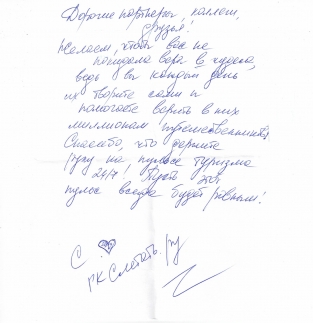 Дорогие партнеры, коллеги,
друзья!
Желаем, чтобы вас не
покидала вера в чудеса,
ведь вы каждый день
их творите сами и
помогаете верить в них
миллионам путешественников.
Спасибо, что держите
руку на пульсе туризма
24/7! Пусть этот
пульс всегда будет ровным!
С ♥
ГК Слетать.ру